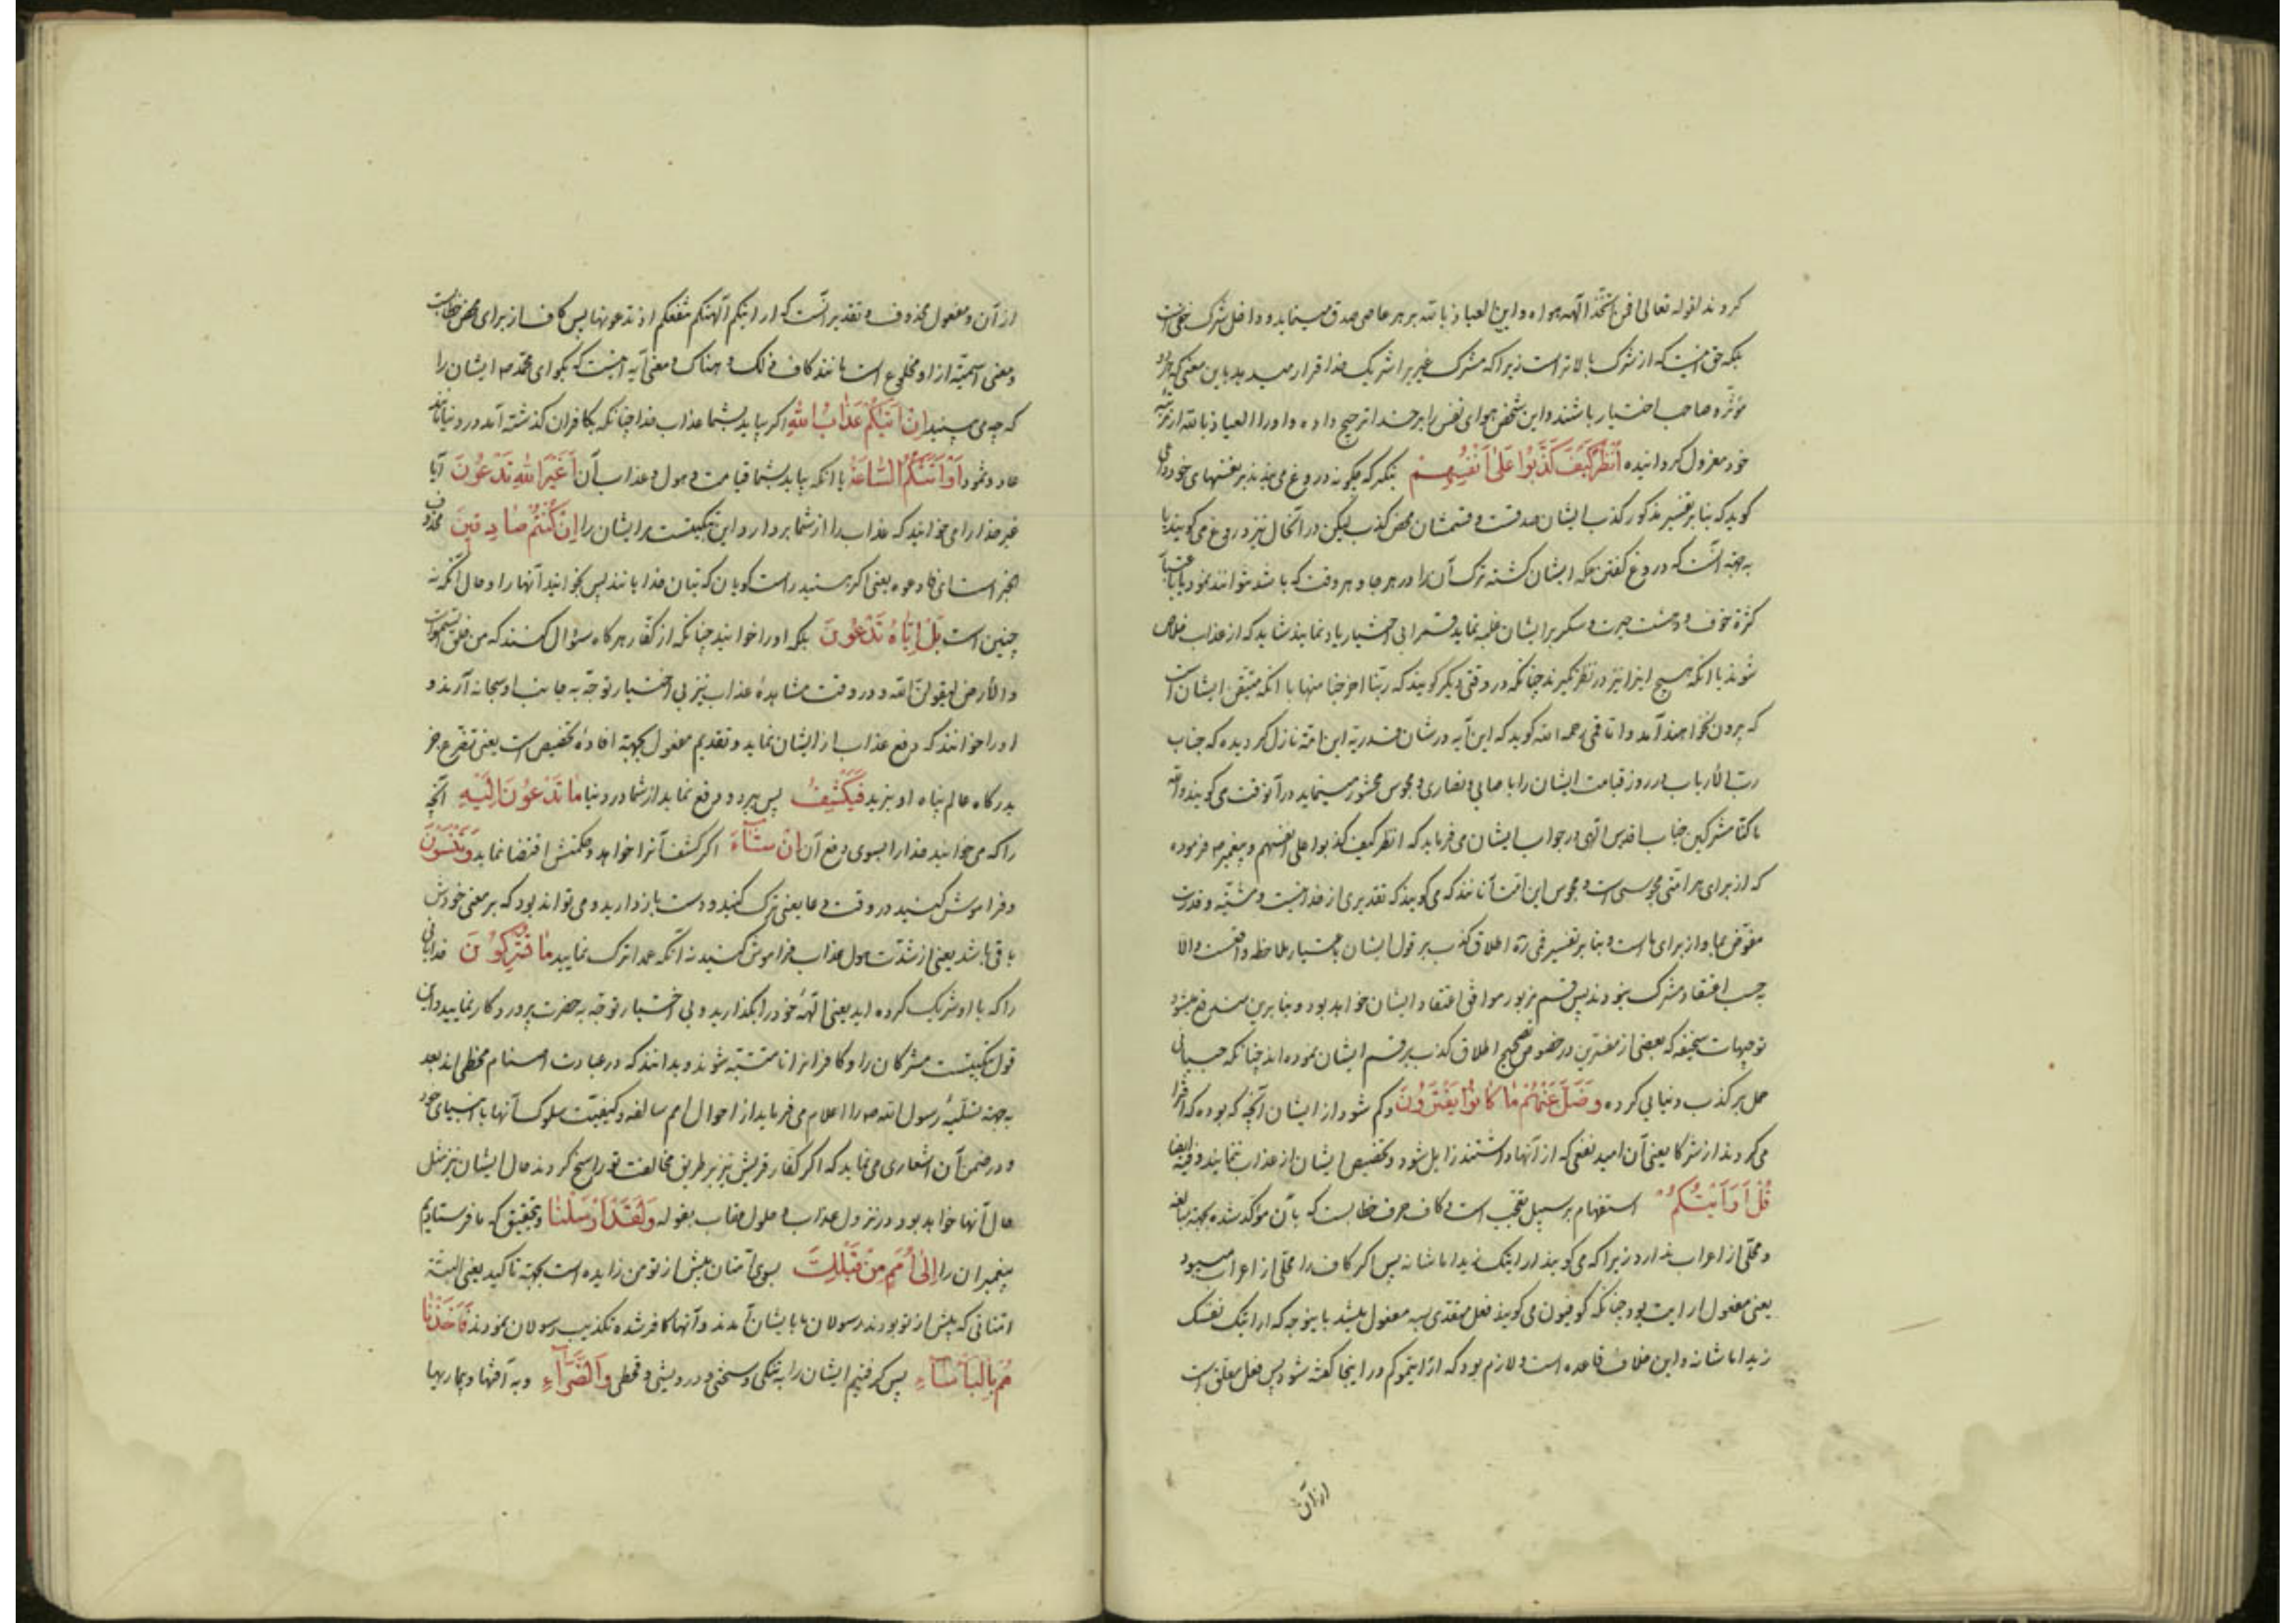 کردند لقوله تعالی افمن اتخذ آلهه هواه و این العیاذ بالله بر هر عاصی صدق مینماید و داخل شرک خفی است
بلکه حق اینست که از شرک بالاتر است زیرا که مشرک غیر را شریک خدا قرار میدهد باین معنی که هر دو
مؤثر و صاحب اختیار باشند و این شخص هوای نفس را بر خدا ترجیح داده و او را العیاذ بالله از مرتبه
خود معزول گردانیده اُنْظُرْ كَيْفَ كَذَبُوا عَلٰى اَنْفُسِهِمْ بنگر که چگونه دروغ می بندند بر نفسهای خود
گوید که بنا بر تفسیر مذکور کذب ایشان صدقست و قسمشان محض کذب لیکن در آنحال نیز دروغ می گویند یا
به جهة آنست که دروغ گفتن ملکه ایشان گشته ترک آن را در هر جا و هر وقت که باشد نتوانند نمود
کثرة خوف و دهشت حیرت و سکر بر ایشان غلبه نماید قسم را بی اختیار یاد نمایند شاید که از عذاب خلاص
شوند با آنکه هیچ اینرا نیز در نظر نگیرند چنانکه در وقتی دیگر گویند که ربنا اخرجنا منها با آنکه متیقن ایشان است
که بیرون نخواهند آمد و اما قمی رحمه الله گوید که این آیه در شان قدریه این امة نازل گردیده که جناب
رب الارباب در روز قیامت ایشان را با صابی و نصاری و مجوس محشور مینماید در آنوقت می گویند والله
ما کنا مشرکین جناب اقدس الهی در جواب ایشان می فرماید که انظر کیف کذبوا علی انفسهم و پیغمبر ص فرموده
که از برای هر امتی مجوسی است و مجوس این امت آنانند که می گویند که تقدیری از خدا نیست و مشیة و قدرت
مفوض بما و از برای ما است و بنا بر تفسیر قمی ره اطلاق کذب بر قول ایشان باعتبار ملاحظه واقعست والا
به حسب اعتقاد مشرک نبودند پس قسم مزبور موافق اعتقاد ایشان خواهد بود و بنابرین مندفع میشود
توجیهات سخیفه که بعضی از مفسرین در خصوص تصحیح اطلاق کذب بر قسم ایشان نموده اند چنانکه جبائی
حمل بر کذب دنیایی کرده وَضَلَّ عَنْهُمْ مٰا كٰانُوا يَفْتَرُونَ و گم شود از ایشان آنچه که بوده که افترا
می کردند از شرکا یعنی آن امید نفعی که از آنها داشتند زایل شود و تخلیص ایشان از عذاب ننمایند وفیه ایضا
قُلْ اَرَاَيْتَكُمْ استفهام بر سبیل تعجب است و کاف حرف خطابست که بآن مؤکد شده بجهة مبالغه
و محلی از اعراب ندارد زیرا که می گویند ارایتک زیدا ما شانه پس اگر کاف را محلی از اعراب میبود
یعنی مفعول ارایت بود چنانکه کوفیون می گویند فعل متعدی بسه مفعول میشد باینوجه که ارایتک نفسک
زیدا ما شانه و این خلاف قاعده است و لازم بود که ارایتموکم در اینجا گفته شود پس فعل معلق است
از آن
از آن و مفعول محذوف و تقدیر آنست که ارایتکم آلهتکم تنفعکم اذ تدعونها پس کاف از برای محض خطابست
و معنی اسمیة از او مخلوع است مانند کاف ذلک و هناک و معنی آیه اینست که بگو ای محمد ص ایشان را
که چه می بینید اِنْ اَتٰيكُمْ عَذٰابُ اللّٰهِ اگر بیاید بشما عذاب خدا چنانکه بکافران گذشته آمد در دنیا مانند
عاد و ثمود اَوْ اَتَتْكُمُ السّٰاعَةُ یا آنکه بیاید بشما قیامت و هول و عذاب آن اَغَيْرَ اللّٰهِ تَدْعُونَ آیا
غیر خدا را می خوانید که عذاب را از شما بردارد و این تبکیتست بر ایشان را اِنْ كُنْتُمْ صٰادِقِينَ محذوف
الجزاست ای فادعوه یعنی اگر هستید راست گویان که بتان خدایانند پس بخوانید آنها را و حال آنکه نه
چنین است بَلْ اِيّٰاهُ تَدْعُونَ بلکه او را خوانید چنانکه از کفار هر گاه سؤال کنند که من خلق السموات
والارض لیقولن الله و در وقت مشاهدهٔ عذاب نیز بی اختیار توجه به جانب او سبحانه آرند و
او را خوانند که دفع عذاب از ایشان نماید و تقدیم مفعول بجهة افادهٔ تخصیص است یعنی تضرع جز
بدرگاه عالم پناه او نبرید فَيَكْشِفُ پس ببرد و رفع نماید از شما در دنیا مٰا تَدْعُونَ اِلَيْهِ آنچه
را که می خوانید خدا را بسوی رفع آن اِنْ شٰآءَ اگر کشف آنرا خواهد و حکمتش اقتضا نماید وَتَنْسَوْنَ
و فراموش کنید در وقت دعا یعنی ترک کنید و دست باز دارید و می تواند بود که بر معنی خودش
باقی باشد یعنی از شدت هول عذاب فراموش کنید نه آنکه عمدا ترک نمایید مٰا تُشْرِكُونَ خدائی
را که با او شریک کرده اید یعنی الهه خود را بگذارید و بی اختیار توجه به حضرت پروردگار نمایید و این
قول تبکیتست مشرکان را و کافران را تا متنبه شوند و بدانند که در عبادت اصنام مخطی اند بعد
به جهة تسلیهٔ رسول الله ص را اعلام می فرماید از احوال امم سالفه و کیفیت سلوک آنها با انبیای خود
و در ضمن آن اشعاری می نماید که اگر کفار قریش نیز بر طریق مخالفت تو راسخ گردند حال ایشان نیز مثل
حال آنها خواهد بود در نزول عذاب و حلول عقاب بقوله وَلَقَدْ اَرْسَلْنٰا و بتحقیق که ما فرستادیم
پیغمبران را اِلٰى اُمَمٍ مِنْ قَبْلِكَ بسوی امتان پیش از تو من زایده است بجهة تاکید یعنی البته
امتانی که پیش از تو بودند رسولان ما بایشان آمدند و آنها کافر شده تکذیب رسولان نمودند فَاَخَذْنٰا
هُمْ بِالْبَاْسٰآءِ پس گرفتیم ایشان را به تنگی و سختی و درویشی و قحطی وَالضَّرّٰآءِ و به آفتها و بیماریها